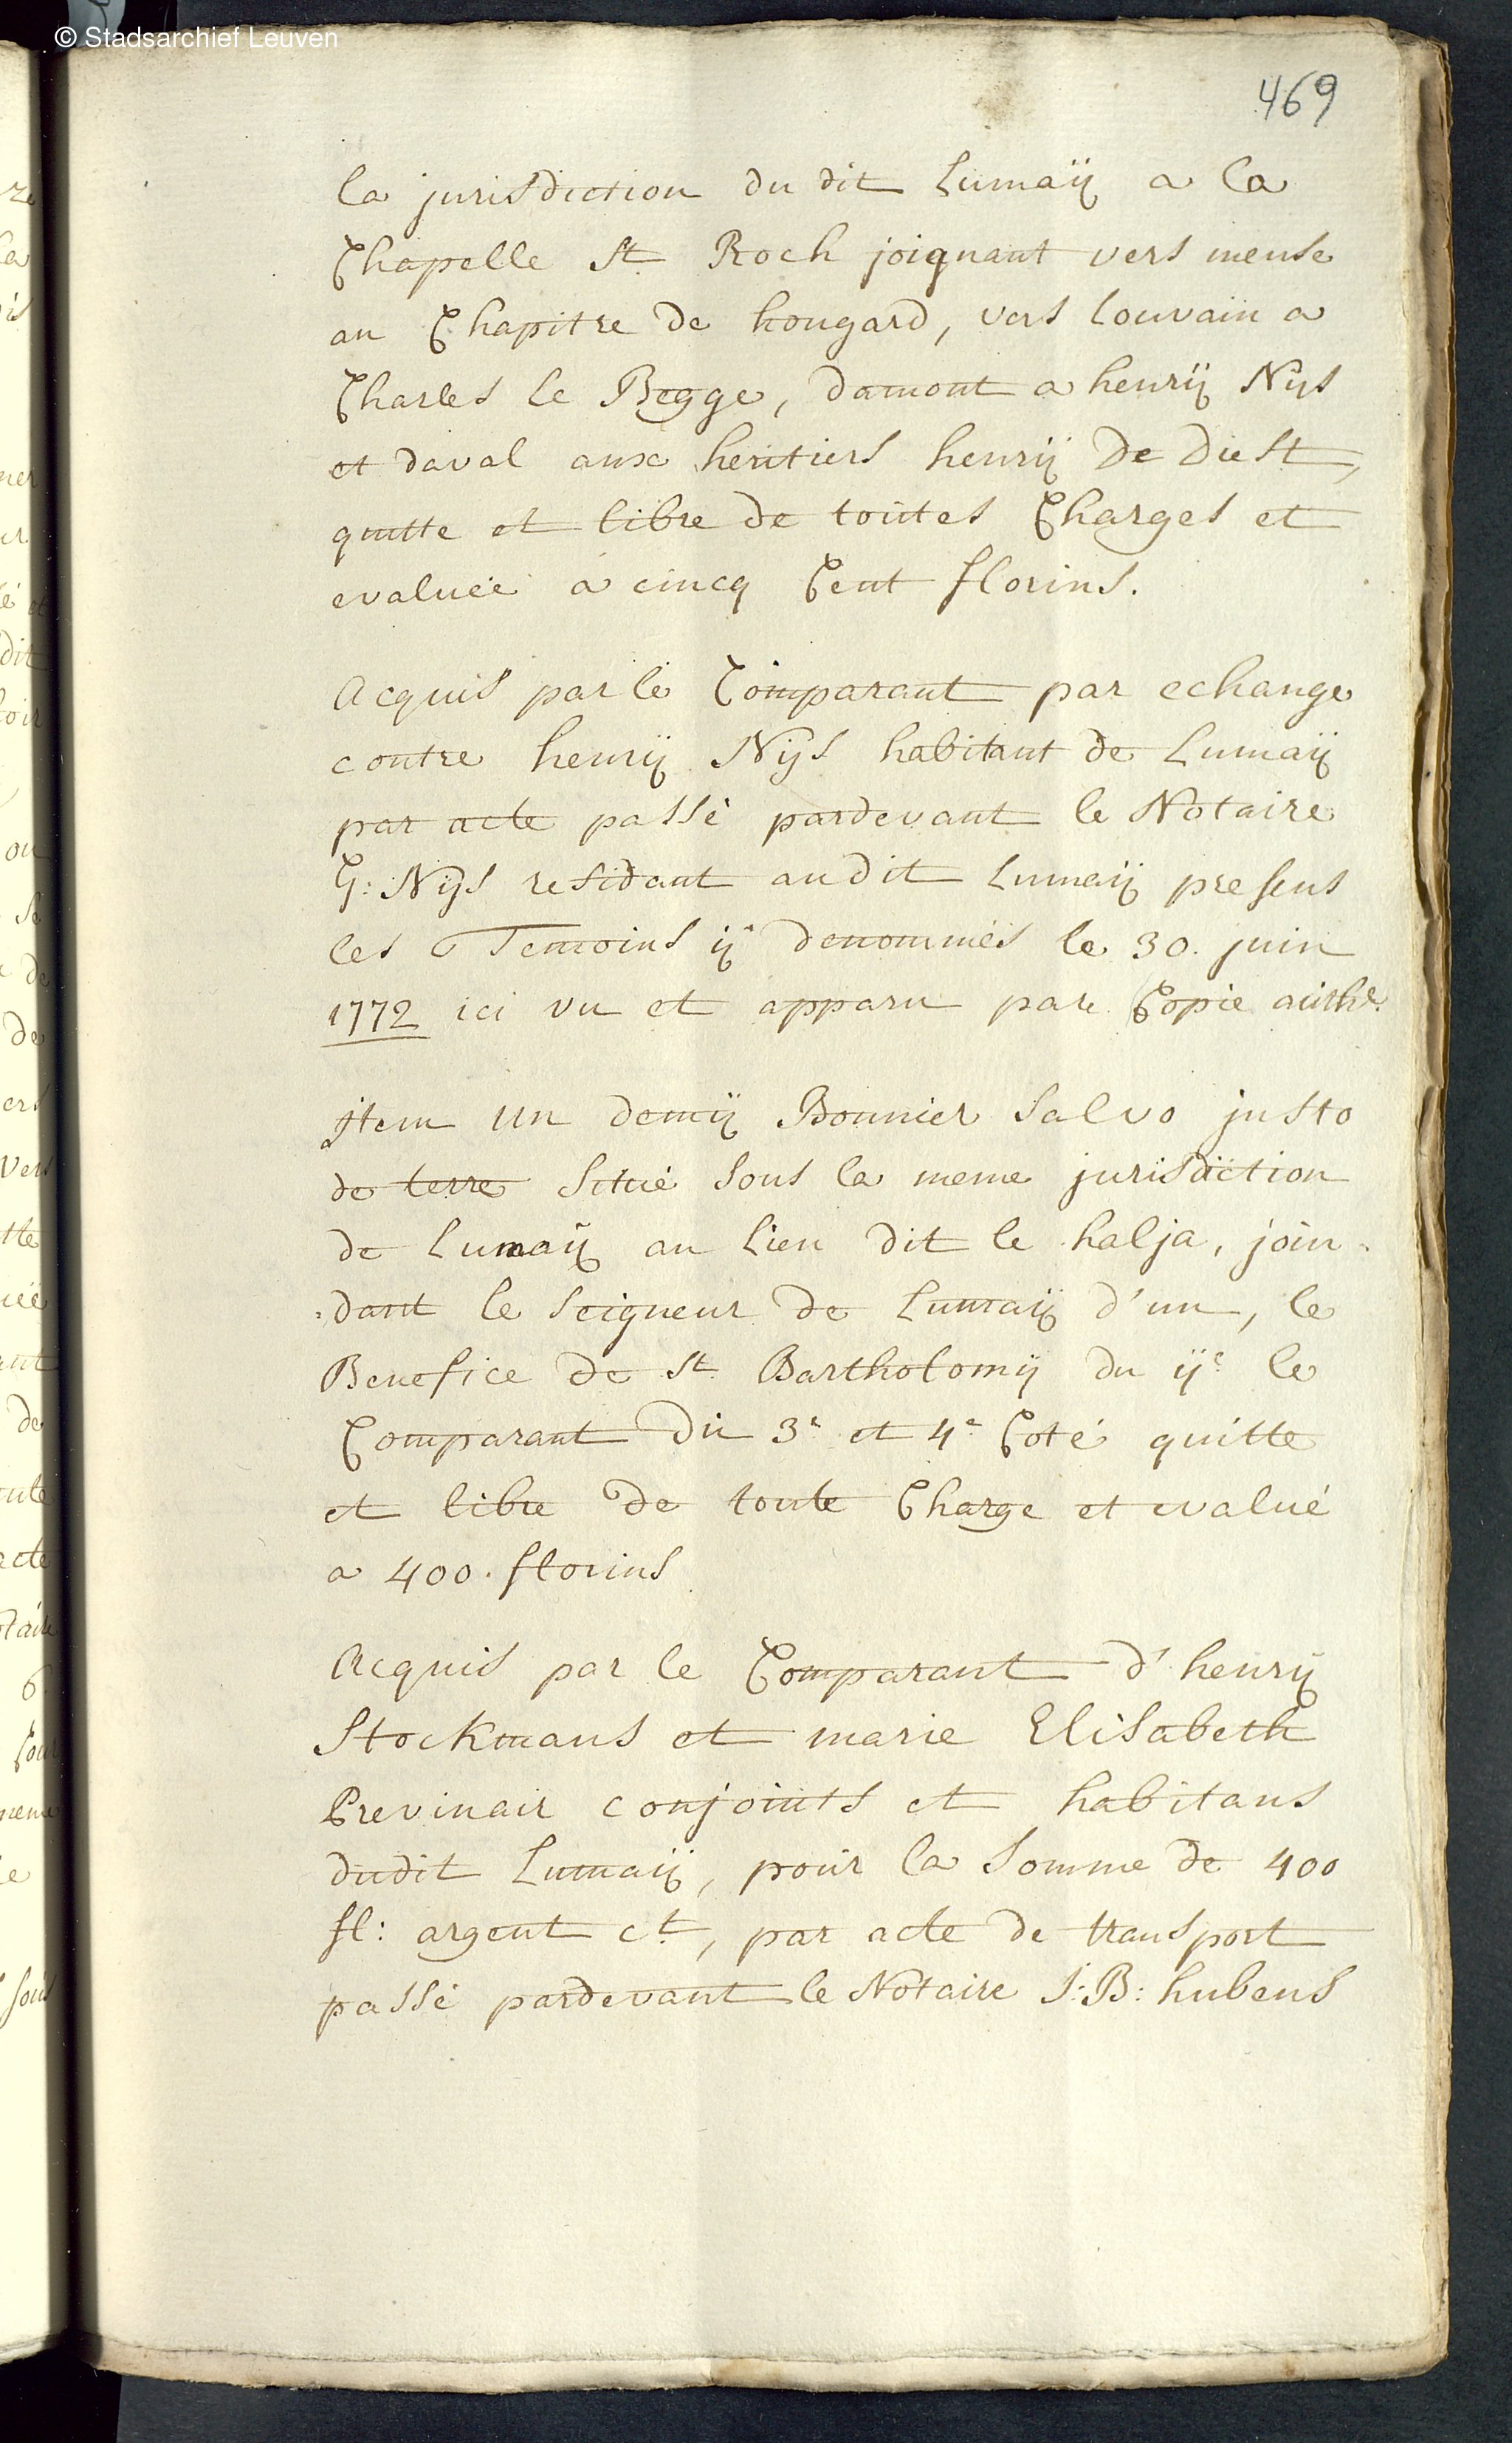 © Stadsarchief Leuven
469
la jurisdiction du dit Lumaÿ a la
Chapelle St Roch joignant vers meuse
au Chapitre de hougard, vers louvain a
Charles le Begge, damont a henrÿ Nys
et daval aux heritiers henrÿ De Diest,
quitte et libre de toutes Charges et
evaluée a cincq Cent florins.
Acquis par le Comparant par echange
contre henrÿ Nÿs habitant de Lumaÿ
par acte passé pardevant le Notaire
G: Nÿs residant audit Lumaÿ presens
les Temoins ÿ denommés le 30. juin
1772 ici vu et apparu par Copie auth:
item un demÿ Bonnier salvo justo
de terre situé sous la meme jurisdiction
de Lumaÿ au lieu dit le halja, join-
-dant le seigneur de Lumaÿ d'un, le
Benefice de St Bartholomÿ du ÿe le
Comparant Du 3e et 4e Coté quitte
et libre de toute Charge et evalué
a 400. florins
Acquis par le Comparant d'henrÿ
Stockmans et marie Elisabeth
Previnair conjoints et habitans
dudit Lumaÿ, pour la somme de 400
fl: argent ct, par acte de transport
passé pardevant le Notaire J: B: hubens